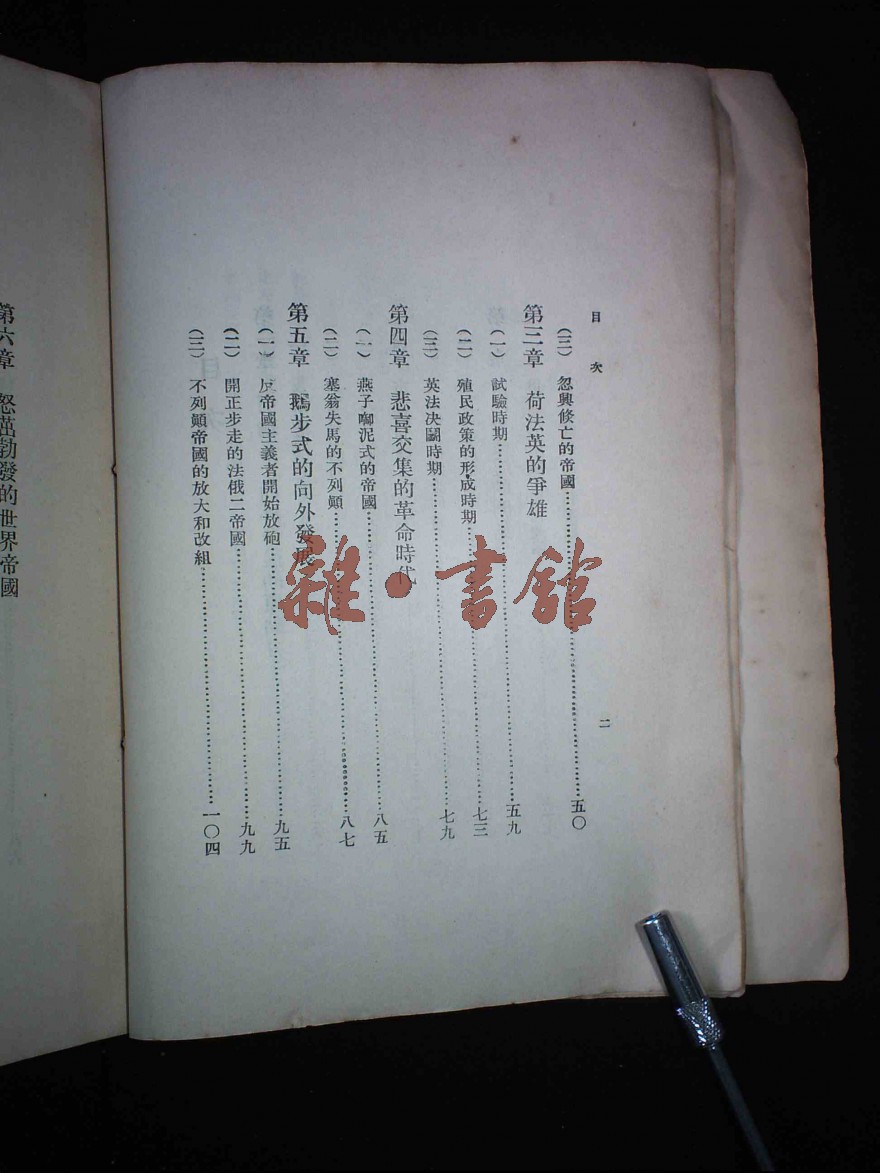 目次
二
(三) 忽興倏亡的帝國…………五〇
第三章 荷法英的爭雄
(一) 試驗時期…………五九
(二) 殖民政策的形成時期…………七三
(三) 英法決鬪時期…………七九
第四章 悲喜交集的革命時代
(一) 燕子啣泥式的帝國…………八五
(二) 塞翁失馬的不列顛…………八七
第五章 鵝步式的向外發展
(一) 反帝國主義者開始放砲…………九五
(二) 開正步走的法俄二帝國…………九九
(三) 不列顛帝國的放大和改組…………一〇四
第六章 怒萬勃發的世界帝國
雜·書館